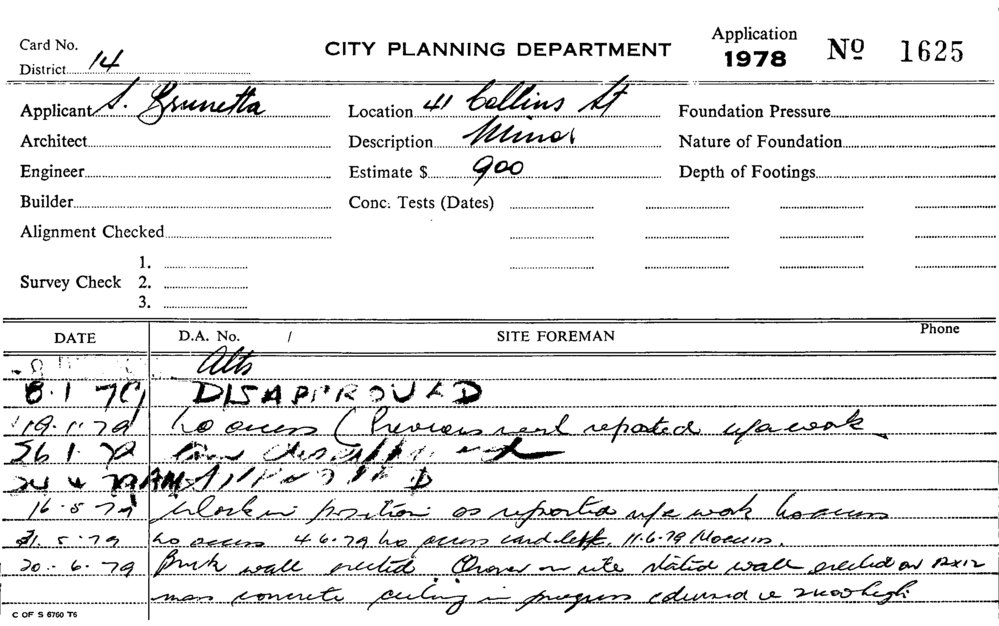 Card No.
CITY PLANNING DEPARTMENT
Application
1978
Nº 1625
District 14
Applicant S. Brunetta
Location 41 Collins St
Foundation Pressure
Architect
Description Minor
Nature of Foundation
Engineer
Estimate $ 900
Depth of Footings
Builder
Conc: Tests (Dates)
Alignment Checked
1.
Survey Check 2.
3.
DATE
D.A. No. /
SITE FOREMAN
Phone
Alts
8.1 79 DISAPPROVED
19.1.79 no access (Previous reported work
26 1 79
24 4 79 AM
16.5 79 Work in position as reported work no access
31.5.79 no access 4.6.79 no access card left. 11.6.79 No access.
20.6.79 Brick wall erected. Owner on site stated wall erected on 12x12
mass concrete ceiling in progress
C OF S 6760 T6